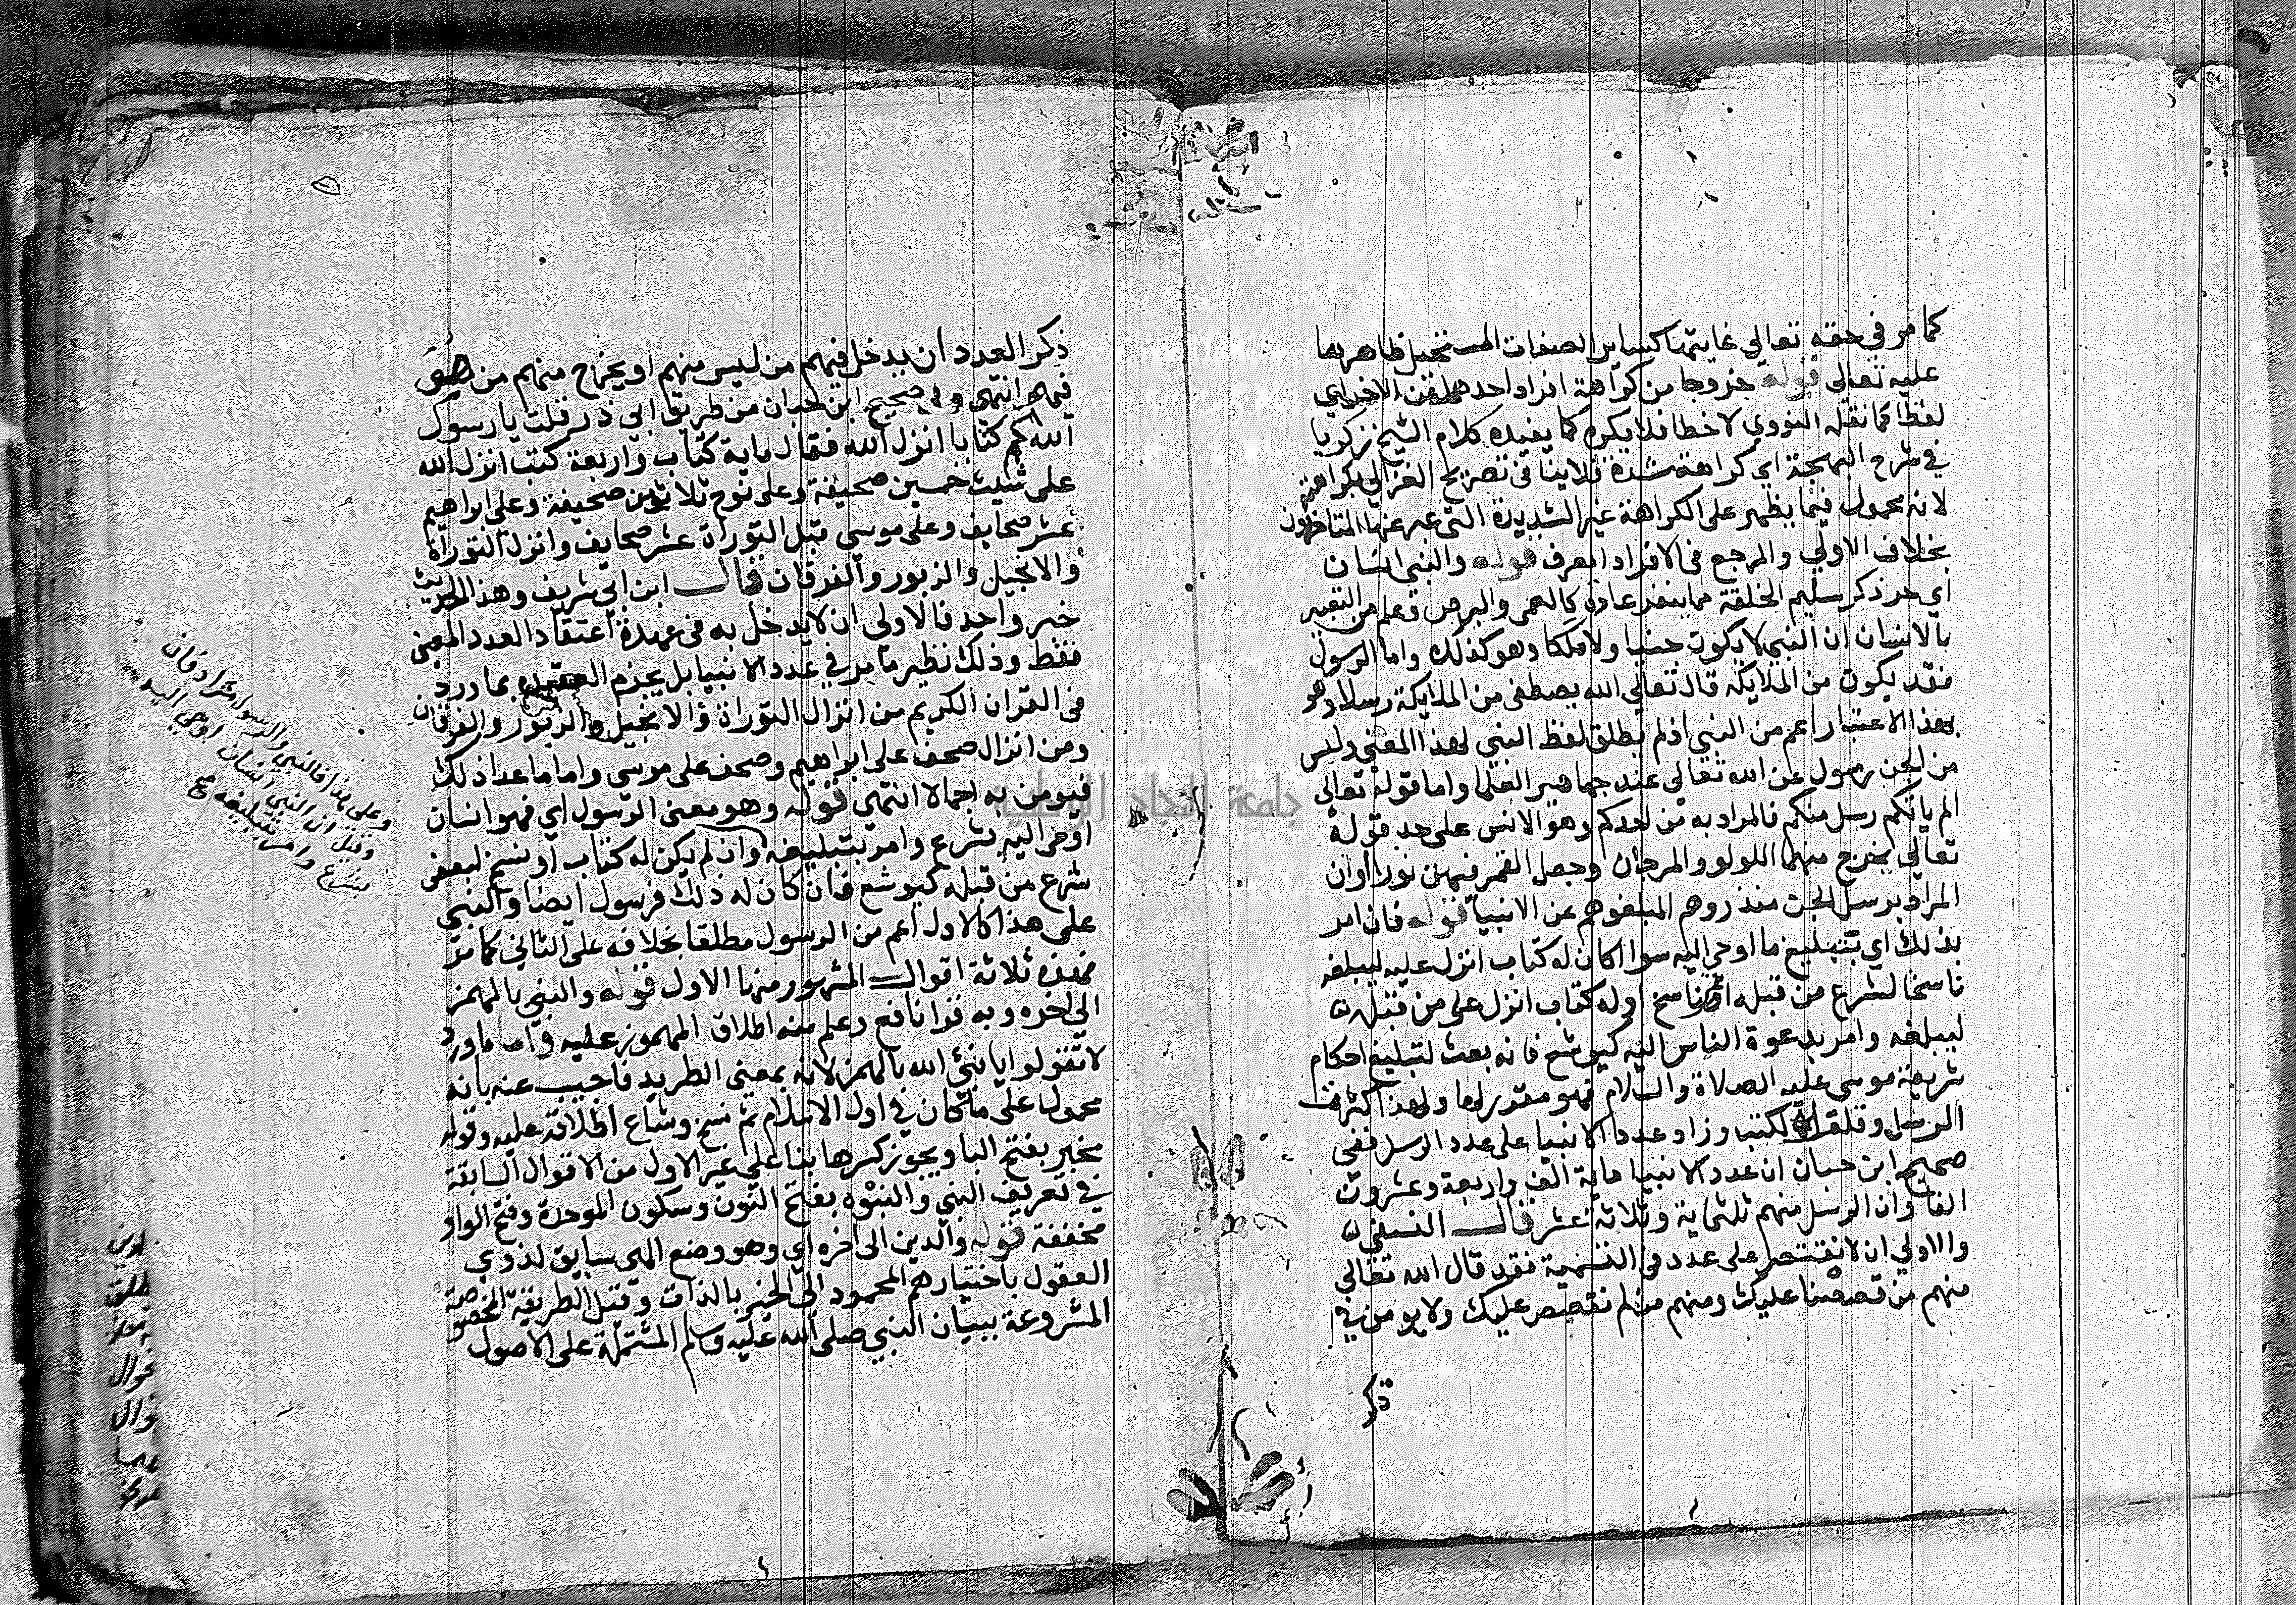 كما مر في حقه تعالى غايتها كسائر الصفات المستحيل ظاهرها
عليه تعالى قوله خروجا من كراهة افراد احدهما عن الاخر اي
لفظا كما نقله النووي لا خطا فلا يكره كما يفيده كلام الشيخ زكريا
في شرح البهجة اي كراهة شدة فلا ينافي تصريح الغزالي بكراهته
لانه محمول فيما يظهر على الكراهة غير الشديدة التي عبر عنها المتاخرون
بخلاف الاولي والمرجع في الافراد العرف قوله والنبي انسان
اي حر ذكر سليم الخلقة مما ينفر عادة كالعمى والبرص فعلم من التعبير
بالانسان ان النبي لا يكون جنيا ولا ملكا وهو كذلك واما الرسول
فقد يكون من الملايكة قال تعالي الله يصطفى من الملايكة رسلا وهو
بهذا الاعتبار اعم من النبي اذ لم يطلق لفظ النبي لهذا المعني وليس
من الجن رسول عن الله تعالى عند جماهير العلما واما قوله تعالى
الم ياتكم رسل منكم فالمراد به من احدكم وهو الانس على حد قوله
تعالي يخرج منهما اللولو والمرجان وجعل القمر فيهن نورا او ان
المراد برسل الجن منذروهم المبلغوهم عن الانبيا قوله فان امر
بذلك اي بتبليغ ما اوحي اليه سوا اكان له كتاب انزل عليه ليبلغه
ناسخا لشرع من قبله او غير ناسخ او له كتاب انزل على من قبله
ليبلغه وامر بدعوة الناس اليه كيوشع فانه بعث لتبليغ احكام
شريعة موسى عليه الصلاة والسلام فهو مقرر لها ولهذا كثرت
الرسل وقلت الكتب وزاد عدد الانبيا على عدد الرسل ففي
صحيح ابن حبان ان عدد الانبيا ماية الف واربعة وعشرون
الفا وان الرسل منهم ثلثماية وثلاثة عشر قال النسفي
والاولي ان لا يقتصر على عدد في التسمية فقد قال الله تعالي
منهم من قصصنا عليك ومنهم من لم نقصص عليك ولا يومن في
ذكر
ذكر العدد ان يدخل فيهم من ليس منهم او يخرج منهم من هو
فيهم انتهى وفي صحيح ابن حبان من طريق ابي ذر قلت يا رسول
الله كم كتابا انزل الله فقال ماية كتاب واربعة كتب انزل الله
على شيث خمسين صحيفة وعلى نوح ثلاثين صحيفة وعلى ابراهيم
عشر صحايف وعلى موسي قبل التوراة عشر صحايف وانزل التوراة
والانجيل والزبور والفرقان قال ابن ابي شريف وهذا الحديث
خبر واحد فالاولي ان لا يدخل به في عهدة اعتقاد العدد المعين
فقط وذلك نظير ما مر في عدد الانبيا بل يجزم بما ورد
في القران الكريم من انزال التوراة والانجيل والزبور والفرقان
ومن انزال صحف على ابراهيم وصحف على موسي واما ما عدا ذلك
فيومن به اجمالا انتهى قوله وهو معنى الرسول اي فهو انسان
اوحى اليه بشرع وامر بتبليغه وان لم يكن له كتاب او نسخ لبعض
شرع من قبله كيوشع فان كان له ذلك فرسول ايضا والنبي
على هذا كالاول اعم من الرسول مطلقا بخلافه على الثاني كما مر
فهذه ثلاثة اقوال المشهور منها الاول قوله والنبي بالهمز
الي اخره وبه قرا نافع وعلم منه اطلاق المهموز عليه واما ما ورد
لا تقولوا يا نبئ الله بالهمز لانه بمعني الطريد فاجيب عنه بانه
محمول على ما كان في اول الاسلام ثم نسخ وشاع اطلاقه عليه وقوله
مخبر بفتح البا ويجوز كسرها بنا على غير الاول من الاقوال السابقة
في تعريف النبي والنبوه بفتح النون وسكون الموحدة وفتح الواو
مخففة قوله والدين الى اخره اي وهو وضع الهى سايق لذوي
العقول باختيارهم المحمود الى الخير بالذات وقيل الطريقة المخصوصة
المشروعة ببيان النبي صلى الله عليه وسلم المشتملة على الاصول
وعلى هذا فالنبي والرسول مترادفان
وقيل ان النبي انسان اوحي اليه
بشرع وامر بتبليغه صح
جامعة النجاح الوطنية